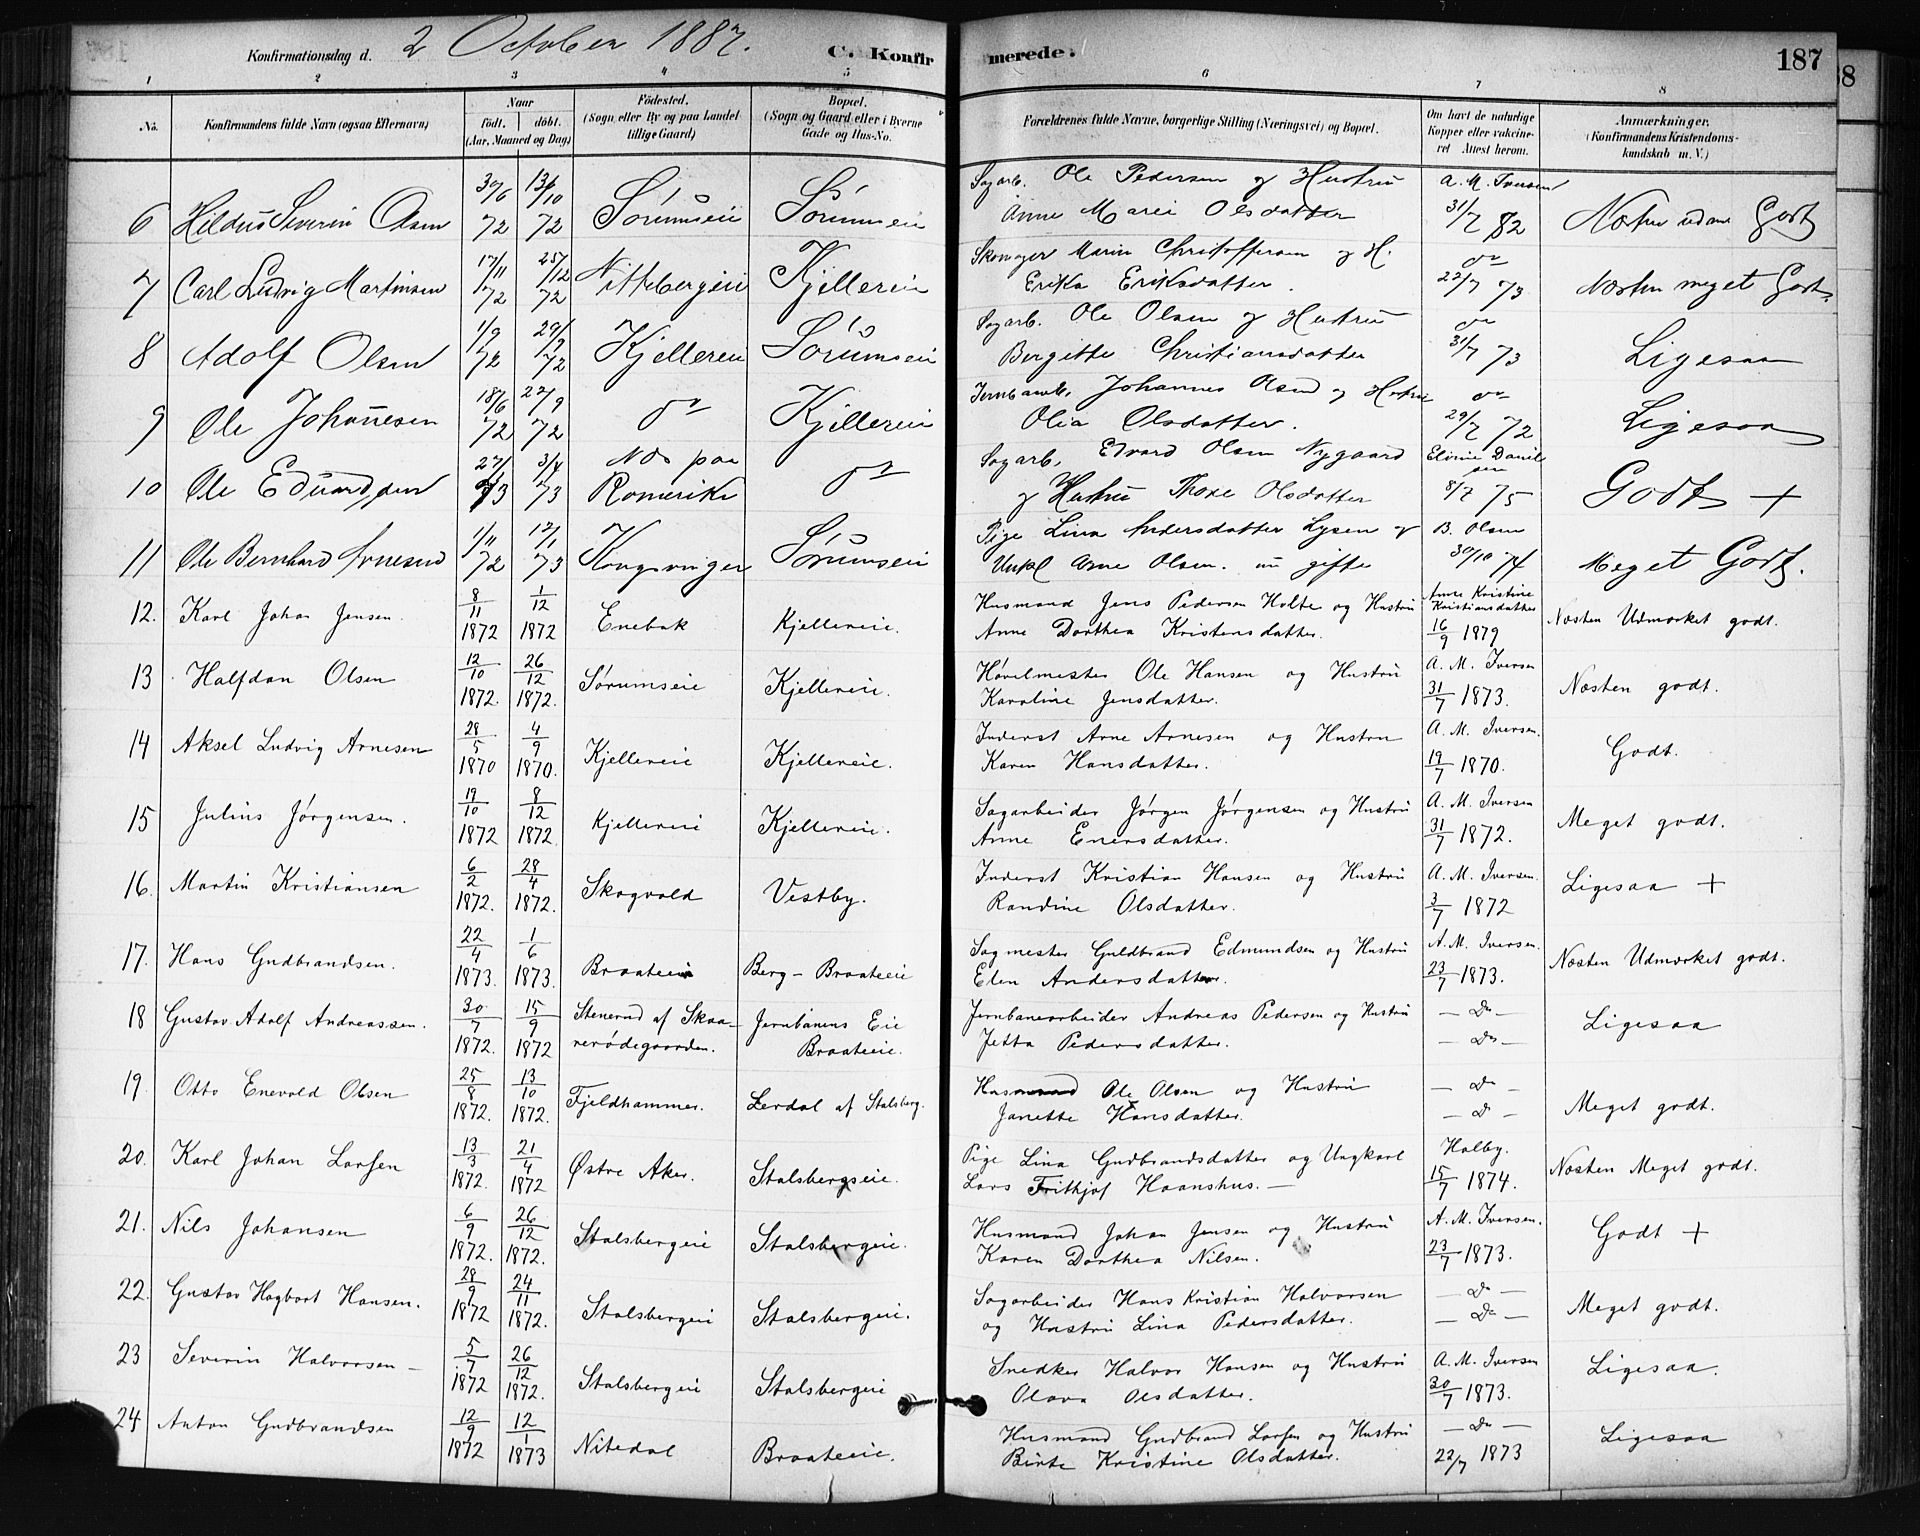 Konfirmationsdag d. 2 October 1887. C. Konfirmerede. 187
1 2 3 4 5 6 7 8
No. Konfirmandens fulde Navn (ogsaa Efternavn) Naar født. døbt. (Aar, Maaned og Dag) Fødested. (Sogn eller By og paa Landet tillige Gaard) Bopæl. (Sogn og Gaard eller i Byerne Gade og Hus-No. Forældrenes fulde Navne, borgerlige Stilling (Næringsvei) og Bopæl. Om havt de naturlige Kopper eller vakcineret Attest herom. Anmærkninger. (Konfirmandens Kristendomskundskab m. V.)
6 Hildus Severin Olsen 30/6 72 13/10 72 Sörumseie Sörumseie Sagarb. Ole Pedersen og Hustru A. M. Iversen
Anne Marie Olsdatter 31/7 82 Næsten udm Godt
7 Carl Ludvig Martinsen 17/11 72 25/12 72 Nittebergeie Kjellereie Skomager Martin Christoffersen og H. do
Erika Eriksdatter. 22/7 73 Næsten meget Godt.
8 Adolf Olsen 1/9 72 29/9 72 Kjellereie Sörumseie Sagarb. Ole Olsen og Hustru do
Bergitte Christiansdatter 31/7 73 Ligesaa
9 Ole Johannesen 18/6 72 22/9 72 do Kjellereie Jernbanearb. Johannes Olsen og Hustru do
Olia Olsdatter. 29/7 72 Ligesaa
10 Ole Eduardsen 27/1 73 3/4 73 Næs paa Romerike do Sagarb. Edvard Olsen Nygaard
og Hustru Thore Olsdatter 8/7 75 Godt +
11 Ole Bernhard Arnesen 1/11 72 12/1 73 Kongsvinger Sörumseie Pige Lina Andersdatter Lysen og B. Olsen
Unkl Arne Olsen. nu gifte 30/10 74 Meget Godt.
12. Karl Johan Jensen. 8/11 1872 1/12 1872 Enebak Kjellereie. Husmand Jens Pedersen Holte og Hustru Anne Kristine Kristiansdatter
Anne Dorthea Kristensdatter. 16/9 1879 Næsten Udmærket godt.
13 Halfdan Olsen 12/10 1872. 26/12 1872. Sørumseie Kjellereie. Høvelmester Ole Hansen og Hustru A. M. Iversen
Karoline Jensdatter. 31/7 1873. Næsten godt.
14 Aksel Ludvig Arnesen 28/5 1870 4/9 1870. Kjellereie Kjellereie. Inderst Arne Arnesen og Hustru A. M. Iversen.
Karen Hansdatter. 19/7 1870. Godt.
15 Julius Jørgensen. 19/10 1872 8/12 1872. Kjellereie Kjellereie. Sagarbeider Jørgen Jørgensen og Hustru A. M. Iversen
Anne Enersdatter. 31/7 1872. Meget godt.
16. Martin Kristiansen 6/2 1872. 28/4 1872. Skogvold Vestby. Inderst Kristian Hansen og Hustru A. M. Iversen.
Randine Olsdatter. 3/7 1872 Ligesaa +
17. Hans Gudbrandsen. 22/4 1873. 1/6 1873. Braateeie Berg - Braateeie Sagmester Guldbrand Edmundsen og Hustru A. M. Iversen.
Elen Andersdatter. 23/7 1873. Næsten Udmærket godt.
18 Gustav Adolf Andreassen. 30/7 1872. 15/9 1872 Stenerud af Skaarerödegaarden. Jernbanens Eie Braateeie. Jernbanearbeider Andreas Pedersen og Hustru — Do —
Jetta Pedersdatter. — Do — Ligesaa
19. Otto Enevold Olsen 25/8 1872. 13/10 1872. Fjeldhammer. Lerdal af Stalsberg. Husmand Ole Olsen og Hustru — Do —
Janette Hansdatter. — Do — Meget godt.
20. Karl Johan Larsen 13/3 1872. 21/4 1872 Østre Aker. Stalsbergseie. Pige Lina Gudbrandsdatter og Ungkarl Holby.
Lars Frithjof Haanshus. — 15/7 1874. Næsten Meget godt.
21. Nils Johansen 6/9 1872. 26/12 1872. Stalsbergeie Stalsbergeie. Husmand Johan Jensen og Hustru A. M. Iversen.
Karen Dorthea Nilsen. 23/7 1873. Godt +
22. Gustav Hagbart Hansen. 28/9 1872 24/11 1872. Stalsbergeie Stalsbergeie. Sagarbeider Hans Kristian Halvorsen — Do —
og Hustru Lina Pedersdatter. — Do — Meget godt.
23 Severin Halvorsen — 5/7 1872 26/12 1872. Stalsbergeie Stalsbergeie Snedker Halvor Hansen og Hustru A. M. Iversen
Olava Olsdatter. 30/7 1873. Ligesaa.
24 Anton Gudbrandsen 12/9 1872 12/1 1873 Nitedal Braateeie. Husmand Gudbrand Larsen og Hustru — Do —
Birte Kristine Olsdatter. 22/7 1873 Ligesaa